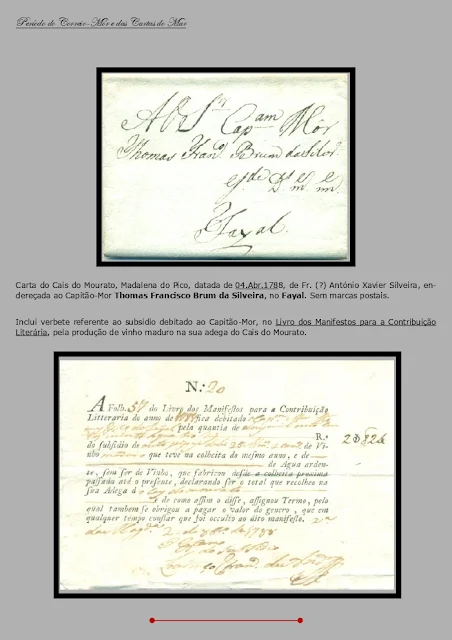 Período do Correio-Mór e das Cartas do Mar
A O Sr. Capam Mór
Thomas Franco Brum da Silvr.
Fayal.
Carta do Cais do Mourato, Madalena do Pico, datada de 04.Abr.1788, de Fr. (?) António Xavier Silveira, en-
dereçada ao Capitão-Mor Thomas Francisco Brum da Silveira, no Fayal. Sem marcas postais.
Inclui verbete referente ao subsídio debitado ao Capitão-Mor, no Livro dos Manifestos para a Contribuição
Literária, pela produção de vinho maduro na sua adega do Cais do Mourato.
N.º 20
A Folh. 57 do Livro dos Manifestos para a Contribuição
Litteraria do anno de 1788 fica debitado
pela quantia de
R.s
do subsidio de de Vi-
nho que teve na colheita do mesmo anno, e de
de Agua arden-
te, sem ser de Vinho, que fabricou desde a colheita proxima
passada até o presente, declarando ser o total que recolheo na
sua Adega
E de como assim o disse, assignou Termo, pelo
qual tambem se obrigou a pagar o valor do genero, que em
qualquer tempo constar que foi occulto ao dito manifesto.
de 1788